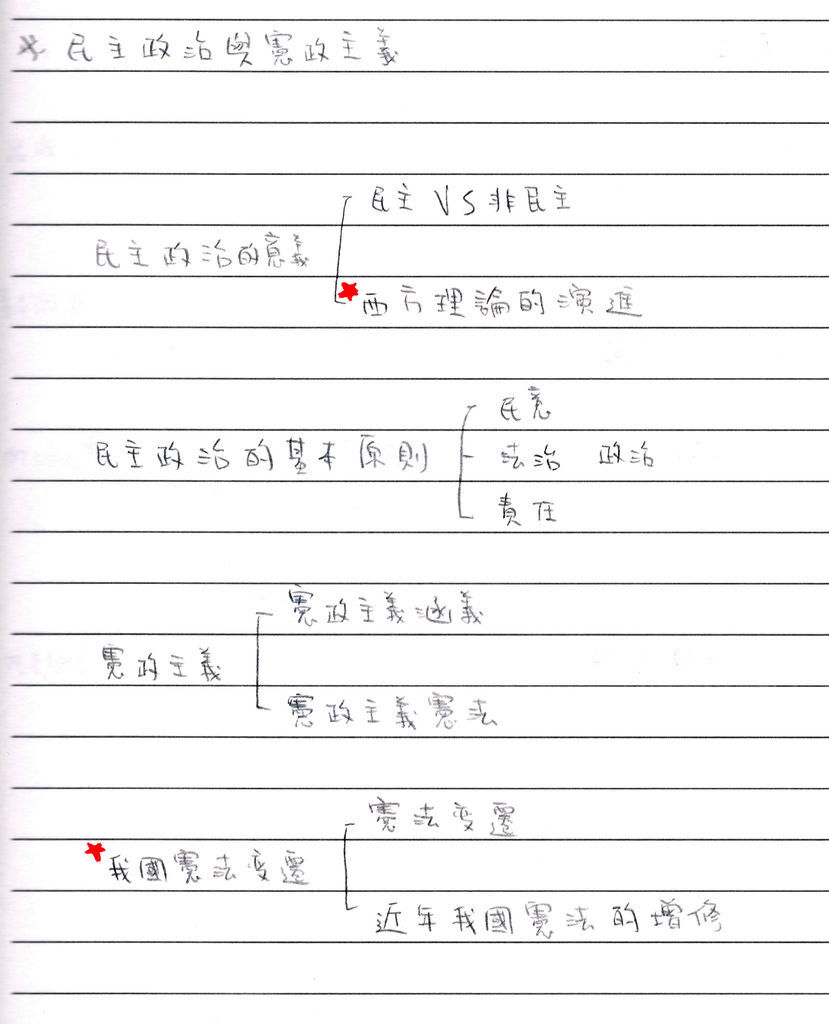 * 民主政治與憲政主義
民主 VS 非民主
民主政治的意義
西方理論的演進
民意
民主政治的基本原則
法治 政治
責任
憲政主義涵義
憲政主義
憲政主義憲法
憲法变遷
我國憲法变遷
近年我國憲法的增修